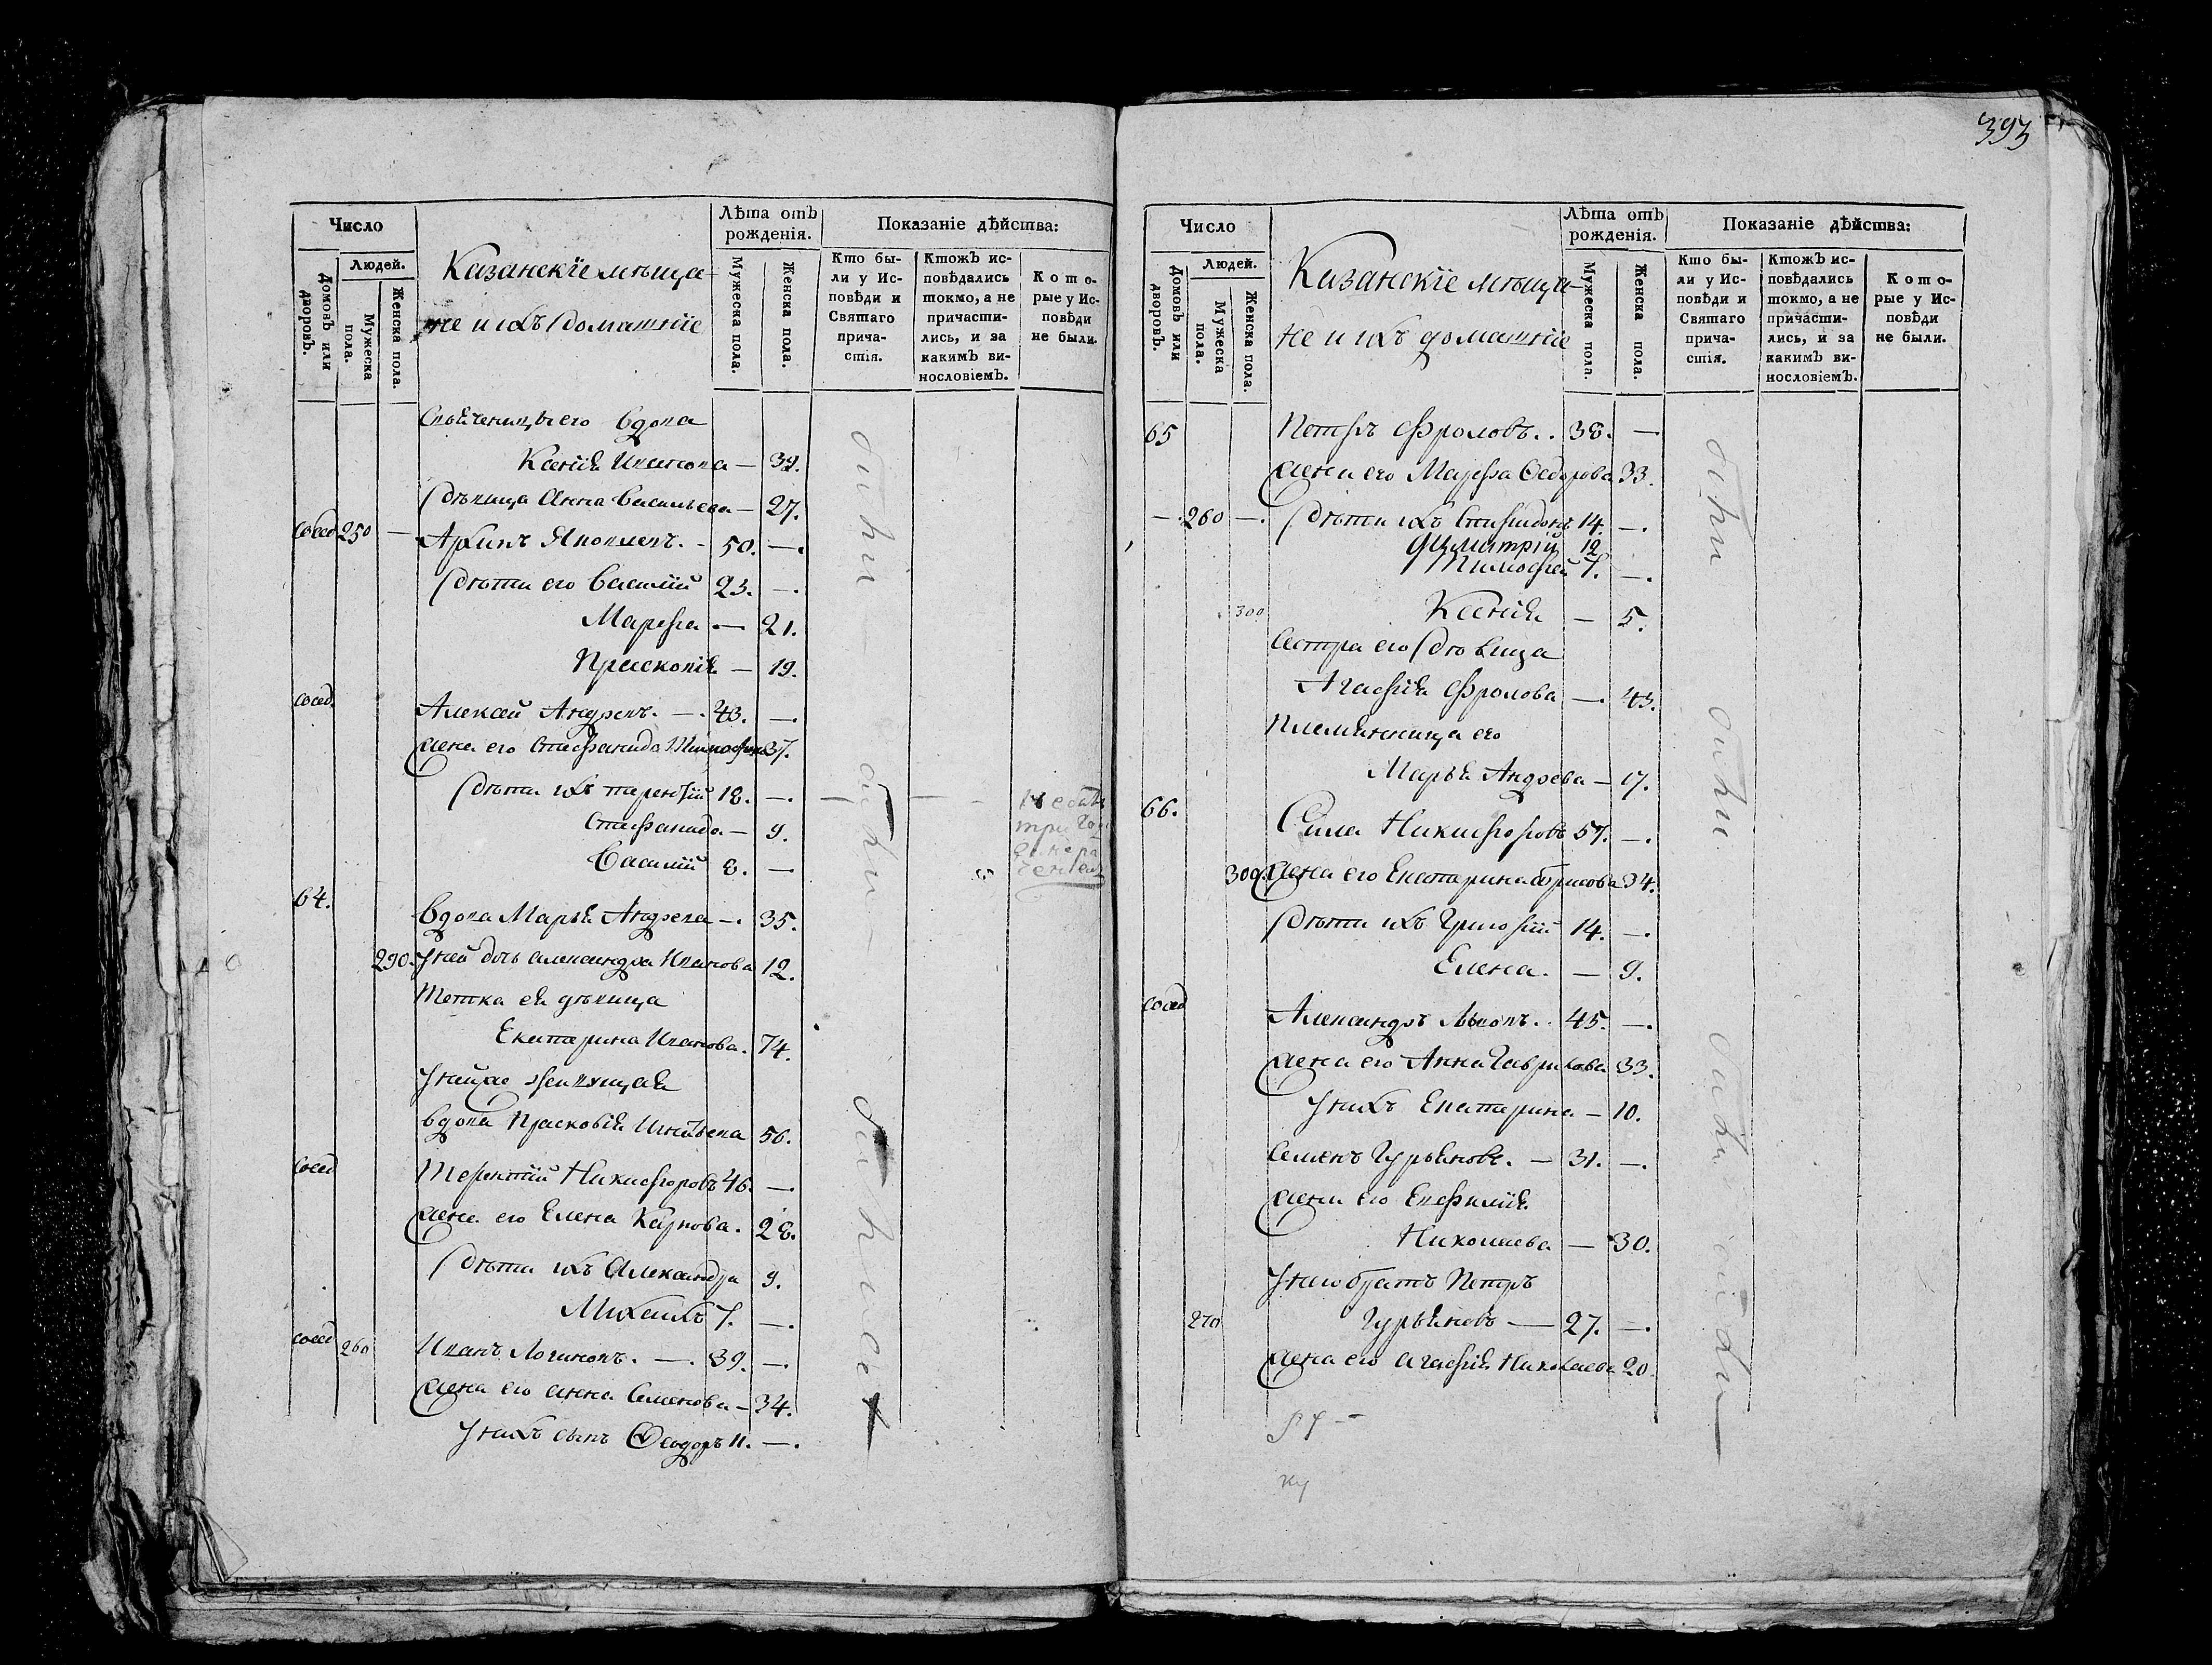 393
Число
Людей.
Домовъ или дворовъ.
Мужеска пола.
Женска пола.
Казанскіе мѣща-
не и ихъ домашніе
Лѣта отъ рожденія.
Мужеска пола.
Женска пола.
Показаніе дѣйства:
Кто бы-
ли у Ис-
повѣди и
Святаго
прича-
стія.
Ктожъ ис-
повѣдались
токмо, а не
причасти-
лись, и за
какимъ ви-
нословіемъ.
Кото-
рые у Ис-
повѣди
не были.
его вдова
Ксенія Иванова — 39.
Дѣвица Анна Васильева — 27.
сосед 250 — Архипъ Яковлевъ. - 50. —.
Дѣти его Василій 23. —.
Марѳа — 21.
Прасковія — 19.
сосед. Алексей Андреевъ. —. 43. —.
жена его Стефанида 37.
Дѣти ихъ терентій 18. —.
Стефанида — 9.
Василій 8. —
64. вдова Марья Андреева —. 35.
290. У ней дочь александра Иванова 12.
Тетка ея дѣвица
Екатерина Иванова. 74.
У ней же
вдова Прасковія 56.
сосед Терентій Никифоровъ 46. —.
жена его Елена Карпова. 28.
Дѣти ихъ Александра 9.
Михаилъ 7. —.
сосед 260 Иванъ Логиновъ. —. 39. —.
жена его анна Семенова — 34.
У нихъ сынъ Ѳеодоръ 11. —.
Число
Людей.
Домовъ или дворовъ.
Мужеска пола.
Женска пола.
Казанскіе мѣща-
не и ихъ домашніе
Лѣта отъ рожденія.
Мужеска пола.
Женска пола.
Показаніе дѣйства:
Кто бы-
ли у Ис-
повѣди и
Святаго
прича-
стія.
Ктожъ ис-
повѣдались
токмо, а не
причасти-
лись, и за
какимъ ви-
нословіемъ.
Кото-
рые у Ис-
повѣди
не были.
65 Петръ Фроловъ.. 38. —.
жена его Марѳа Ѳедорова 33.
—. 260 —. Дѣти ихъ Спиридонъ 14. —.
Димитрій 12
Тимофей 7. —.
300 Ксенія — 5.
Сестра его Дѣвица
Агафія Фролова —. 43.
Племянница его
Марья Андреева — 17.
66. Сила Никифоровъ 57. —.
309. жена его Екатерина Борисова 34.
Дѣти ихъ Григорій 14. —.
Елена. — 9.
сосед Александръ Львовъ.. 45. —.
жена его Анна Гаврилова 33.
У нихъ Екатерина — 10.
Семенъ Гурьяновъ. — 31. —.
жена его Евфимія
Николаева — 30.
У него братъ Петръ
270 Гурьяновъ — 27. —.
жена его агафія Николаева 20.